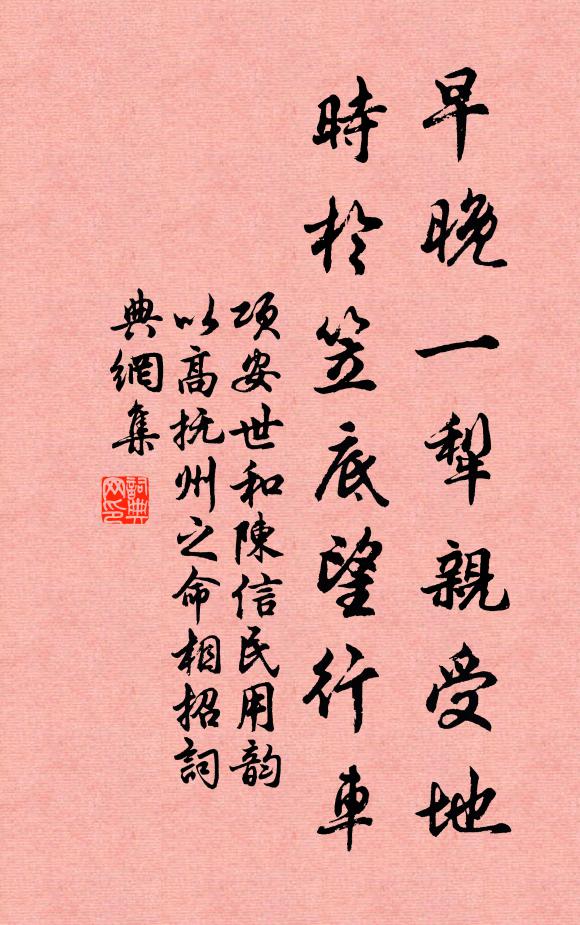 早晚一犁親受地
時於笠底望行車
項安世和陳信民用韵
以高抚州之命相招詞
典網集
詞典網印